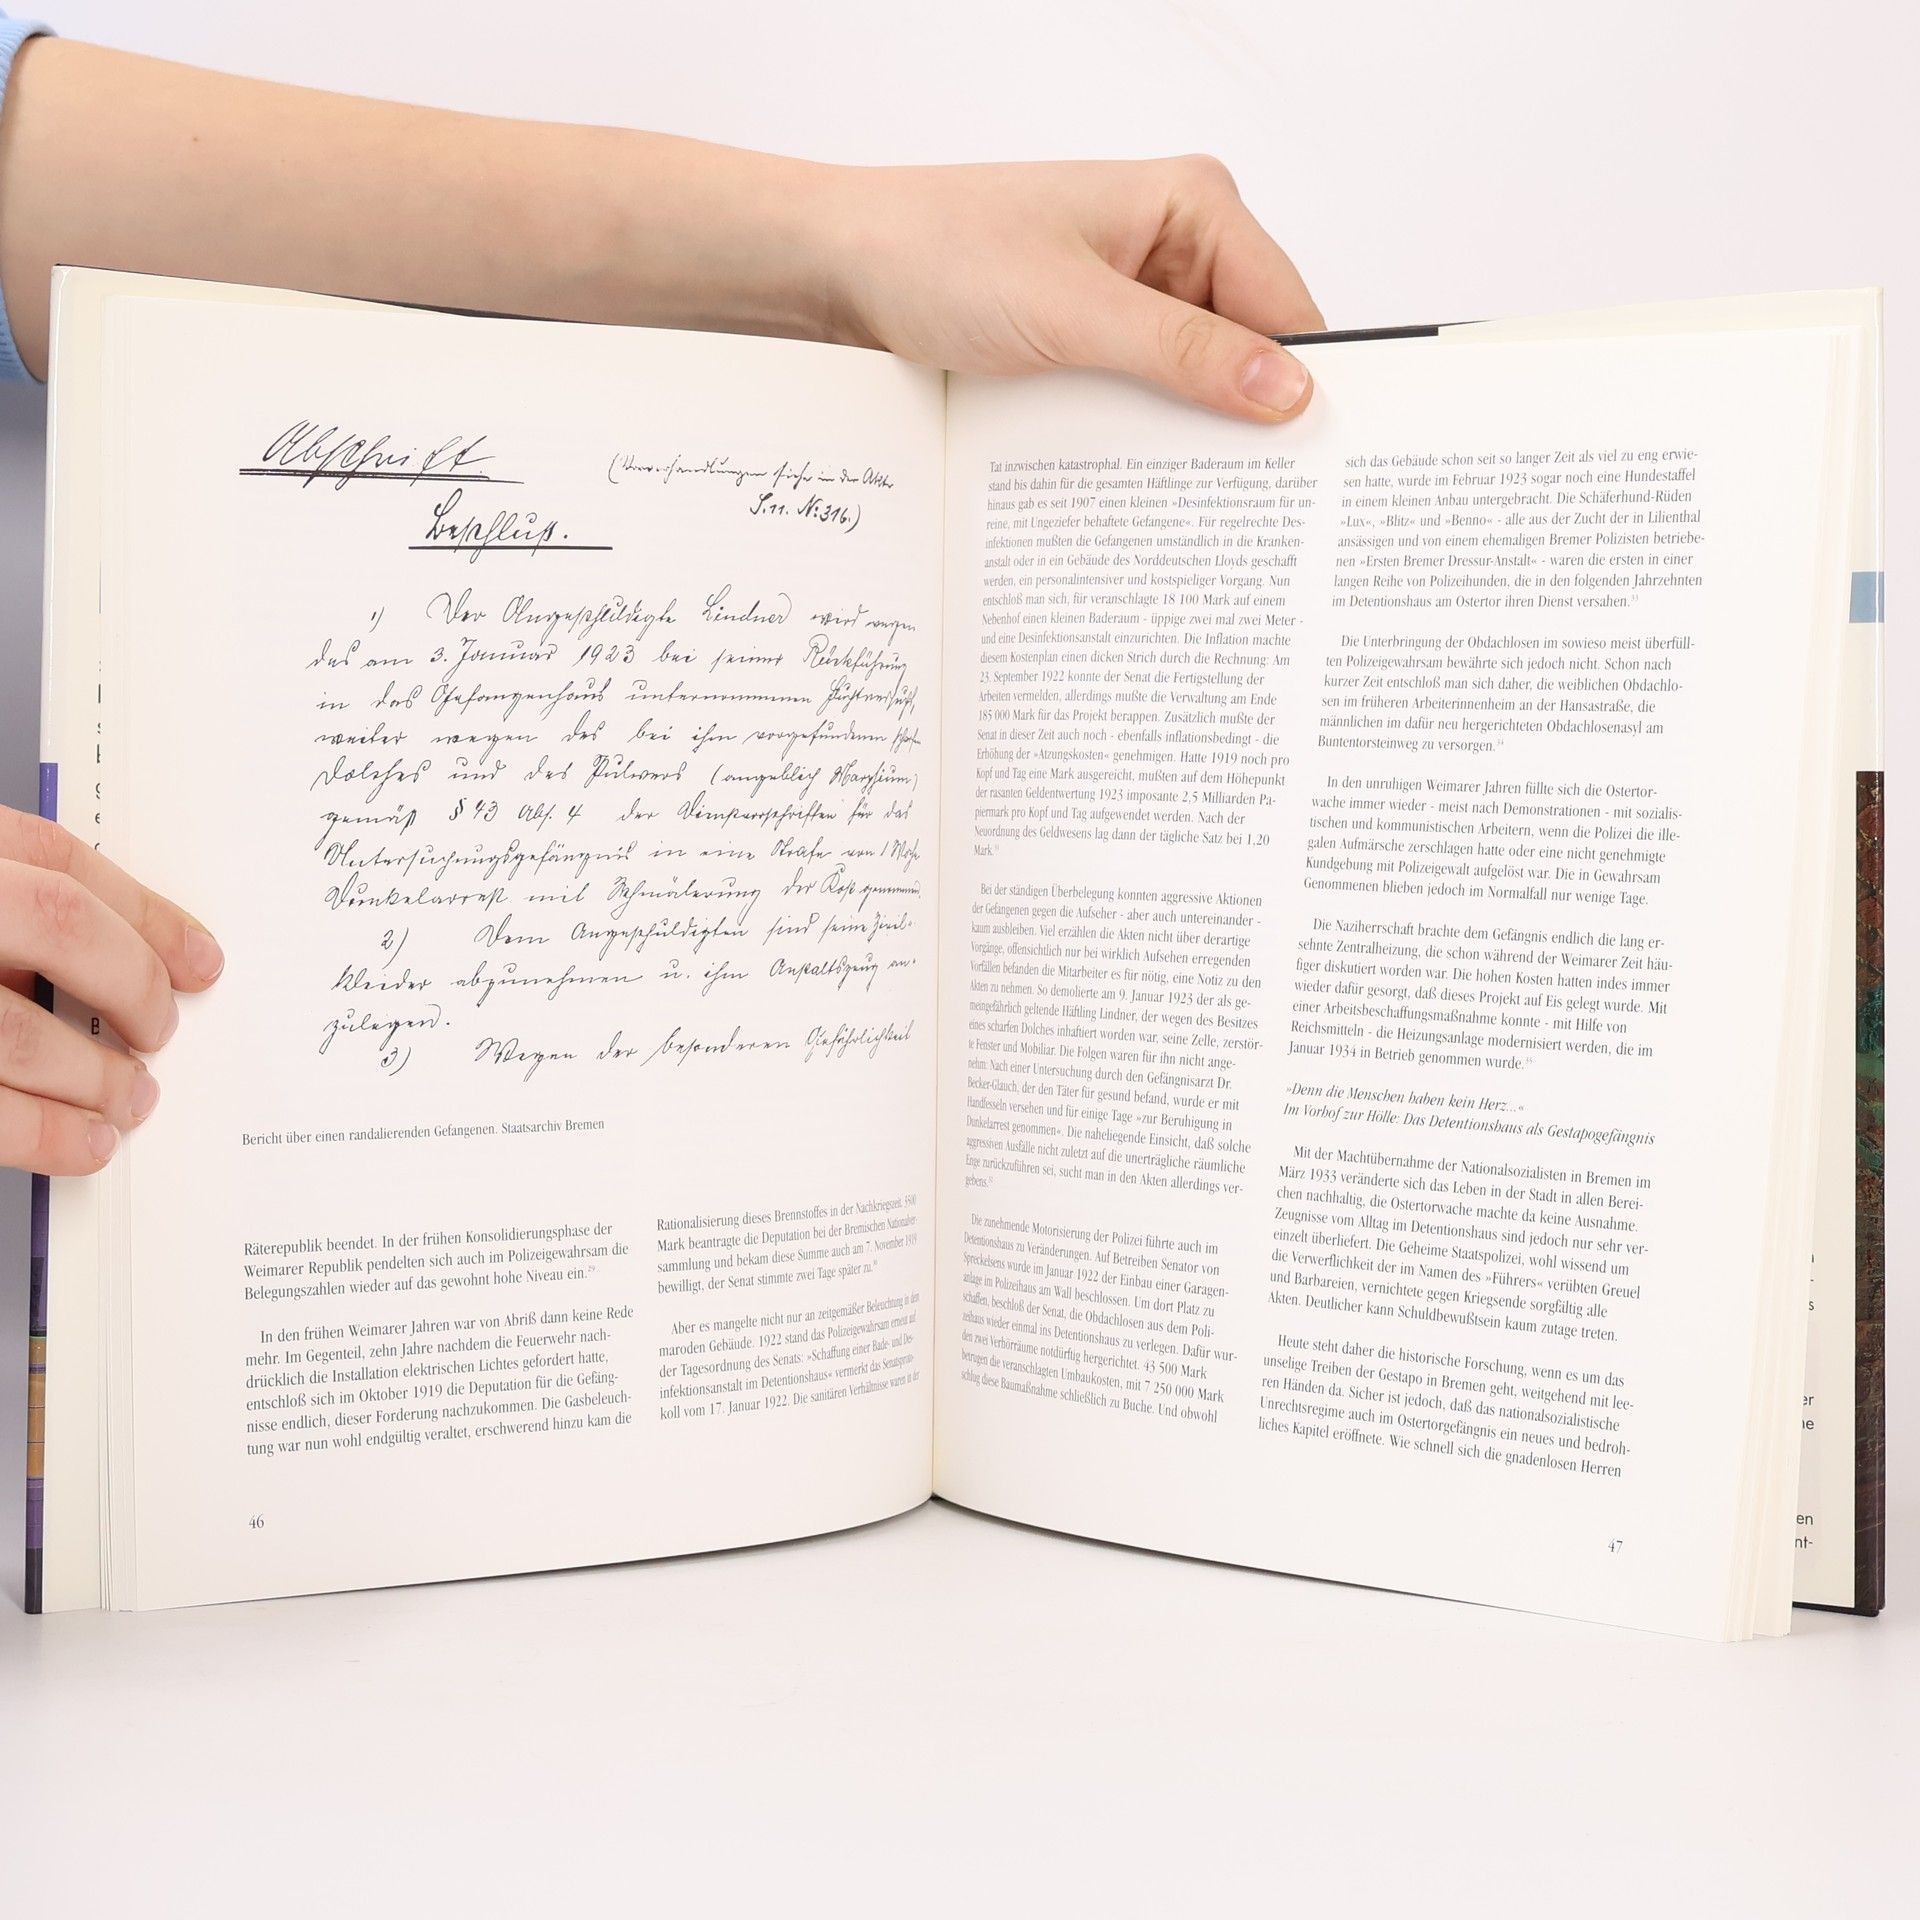 Abschrift.
(Vorverhandlungen siehe in der Akte
S.11. No: 316.)
Beschluß.
1) Der Angeschuldigte Lindner wird wegen
des am 3. Januar 1923 bei seiner Rückführung
in das Gefangenhaus unternommenen Fluchtversuchs,
weiter wegen des bei ihm vorgefundenen scharfen
Dolches und des Pulvers (angeblich Morphium)
gemäß § 43 Abs. 4 der Dienstvorschriften für das
Untersuchungsgefängnis in eine Strafe von 1 Woche
Dunkelarrest mit Schmälerung der Kost genommen.
2) Dem Angeschuldigten sind seine Zivil-
kleider abzunehmen u. ihm Anstaltszeug an-
zulegen.
3) Wegen der besonderen Gefährlichkeit
Bericht über einen randalierenden Gefangenen. Staatsarchiv Bremen
Räterepublik beendet. In der frühen Konsolidierungsphase der
Weimarer Republik pendelten sich auch im Polizeigewahrsam die
Belegungszahlen wieder auf das gewohnt hohe Niveau ein.29
In den frühen Weimarer Jahren war von Abriß dann keine Rede
mehr. Im Gegenteil, zehn Jahre nachdem die Feuerwehr nach-
drücklich die Installation elektrischen Lichtes gefordert hatte,
entschloß sich im Oktober 1919 die Deputation für die Gefäng-
nisse endlich, dieser Forderung nachzukommen. Die Gasbeleuch-
tung war nun wohl endgültig veraltet, erschwerend hinzu kam die
Rationalisierung dieses Brennstoffes in der Nachkriegszeit. 5500
Mark beantragte die Deputation bei der Bremischen Nationalver-
sammlung und bekam diese Summe auch am 7. November 1919
bewilligt, der Senat stimmte zwei Tage später zu.30
Aber es mangelte nicht nur an zeitgemäßer Beleuchtung in dem
maroden Gebäude. 1922 stand das Polizeigewahrsam erneut auf
der Tagesordnung des Senats: »Schaffung einer Bade- und Des-
infektionsanstalt im Detentionshaus« vermerkt das Senatsproto-
koll vom 17. Januar 1922. Die sanitären Verhältnisse waren in der
46
Tat inzwischen katastrophal. Ein einziger Baderaum im Keller
stand bis dahin für die gesamten Häftlinge zur Verfügung, darüber
hinaus gab es seit 1907 einen kleinen »Desinfektionsraum für un-
reine, mit Ungeziefer behaftete Gefangene«. Für regelrechte Des-
infektionen mußten die Gefangenen umständlich in die Kranken-
anstalt oder in ein Gebäude des Norddeutschen Lloyds geschafft
werden, ein personalintensiver und kostspieliger Vorgang. Nun
entschloß man sich, für veranschlagte 18 100 Mark auf einem
Nebenhof einen kleinen Baderaum - üppige zwei mal zwei Meter -
und eine Desinfektionsanstalt einzurichten. Die Inflation machte
diesem Kostenplan einen dicken Strich durch die Rechnung: Am
23. September 1922 konnte der Senat die Fertigstellung der
Arbeiten vermelden, allerdings mußte die Verwaltung am Ende
185 000 Mark für das Projekt berappen. Zusätzlich mußte der
Senat in dieser Zeit auch noch - ebenfalls inflationsbedingt - die
Erhöhung der »Atzungskosten« genehmigen. Hatte 1919 noch pro
Kopf und Tag eine Mark ausgereicht, mußten auf dem Höhepunkt
der rasanten Geldentwertung 1923 imposante 2,5 Milliarden Pa-
piermark pro Kopf und Tag aufgewendet werden. Nach der
Neuordnung des Geldwesens lag dann der tägliche Satz bei 1,20
Mark.31
Bei der ständigen Überbelegung konnten aggressive Aktionen
der Gefangenen gegen die Aufseher - aber auch untereinander -
kaum ausbleiben. Viel erzählen die Akten nicht über derartige
Vorgänge, offensichtlich nur bei wirklich Aufsehen erregenden
Vorfällen befanden die Mitarbeiter es für nötig, eine Notiz zu den
Akten zu nehmen. So demolierte am 9. Januar 1923 der als ge-
meingefährlich geltende Häftling Lindner, der wegen des Besitzes
eines scharfen Dolches inhaftiert worden war, seine Zelle, zerstör-
te Fenster und Mobiliar. Die Folgen waren für ihn nicht ange-
nehm: Nach einer Untersuchung durch den Gefängnisarzt Dr.
Becker-Glauch, der den Täter für gesund befand, wurde er mit
Handfesseln versehen und für einige Tage »zur Beruhigung in
Dunkelarrest genommen«. Die naheliegende Einsicht, daß solche
aggressiven Ausfälle nicht zuletzt auf die unerträgliche räumliche
Enge zurückzuführen sei, sucht man in den Akten allerdings ver-
gebens.32
Die zunehmende Motorisierung der Polizei führte auch im
Detentionshaus zu Veränderungen. Auf Betreiben Senator von
Spreckelsens wurde im Januar 1922 der Einbau einer Garagen-
anlage im Polizeihaus am Wall beschlossen. Um dort Platz zu
schaffen, beschloß der Senat, die Obdachlosen aus dem Poli-
zeihaus wieder einmal ins Detentionshaus zu verlegen. Dafür wur-
den zwei Verhörräume notdürftig hergerichtet. 43 500 Mark
betrugen die veranschlagten Umbaukosten, mit 7 250 000 Mark
schlug diese Baumaßnahme schließlich zu Buche. Und obwohl
sich das Gebäude schon seit so langer Zeit als viel zu eng erwie-
sen hatte, wurde im Februar 1923 sogar noch eine Hundestaffel
in einem kleinen Anbau untergebracht. Die Schäferhund-Rüden
»Lux«, »Blitz« und »Benno« - alle aus der Zucht der in Lilienthal
ansässigen und von einem ehemaligen Bremer Polizisten betriebe-
nen »Ersten Bremer Dressur-Anstalt« - waren die ersten in einer
langen Reihe von Polizeihunden, die in den folgenden Jahrzehnten
im Detentionshaus am Ostertor ihren Dienst versahen.33
Die Unterbringung der Obdachlosen im sowieso meist überfüll-
ten Polizeigewahrsam bewährte sich jedoch nicht. Schon nach
kurzer Zeit entschloß man sich daher, die weiblichen Obdachlo-
sen im früheren Arbeiterinnenheim an der Hansastraße, die
männlichen im dafür neu hergerichteten Obdachlosenasyl am
Buntentorsteinweg zu versorgen.34
In den unruhigen Weimarer Jahren füllte sich die Ostertor-
wache immer wieder - meist nach Demonstrationen - mit sozialis-
tischen und kommunistischen Arbeitern, wenn die Polizei die ille-
galen Aufmärsche zerschlagen hatte oder eine nicht genehmigte
Kundgebung mit Polizeigewalt aufgelöst war. Die in Gewahrsam
Genommenen blieben jedoch im Normalfall nur wenige Tage.
Die Naziherrschaft brachte dem Gefängnis endlich die lang er-
sehnte Zentralheizung, die schon während der Weimarer Zeit häu-
figer diskutiert worden war. Die hohen Kosten hatten indes immer
wieder dafür gesorgt, daß dieses Projekt auf Eis gelegt wurde. Mit
einer Arbeitsbeschaffungsmaßnahme konnte - mit Hilfe von
Reichsmitteln - die Heizungsanlage modernisiert werden, die im
Januar 1934 in Betrieb genommen wurde.35
»Denn die Menschen haben kein Herz...«
Im Vorhof zur Hölle: Das Detentionshaus als Gestapogefängnis
Mit der Machtübernahme der Nationalsozialisten in Bremen im
März 1933 veränderte sich das Leben in der Stadt in allen Berei-
chen nachhaltig, die Ostertorwache machte da keine Ausnahme.
Zeugnisse vom Alltag im Detentionshaus sind jedoch nur sehr ver-
einzelt überliefert. Die Geheime Staatspolizei, wohl wissend um
die Verwerflichkeit der im Namen des »Führers« verübten Greuel
und Barbareien, vernichtete gegen Kriegsende sorgfältig alle
Akten. Deutlicher kann Schuldbewußtsein kaum zutage treten.
Heute steht daher die historische Forschung, wenn es um das
unselige Treiben der Gestapo in Bremen geht, weitgehend mit lee-
ren Händen da. Sicher ist jedoch, daß das nationalsozialistische
Unrechtsregime auch im Ostertorgefängnis ein neues und bedroh-
liches Kapitel eröffnete. Wie schnell sich die gnadenlosen Herren
47